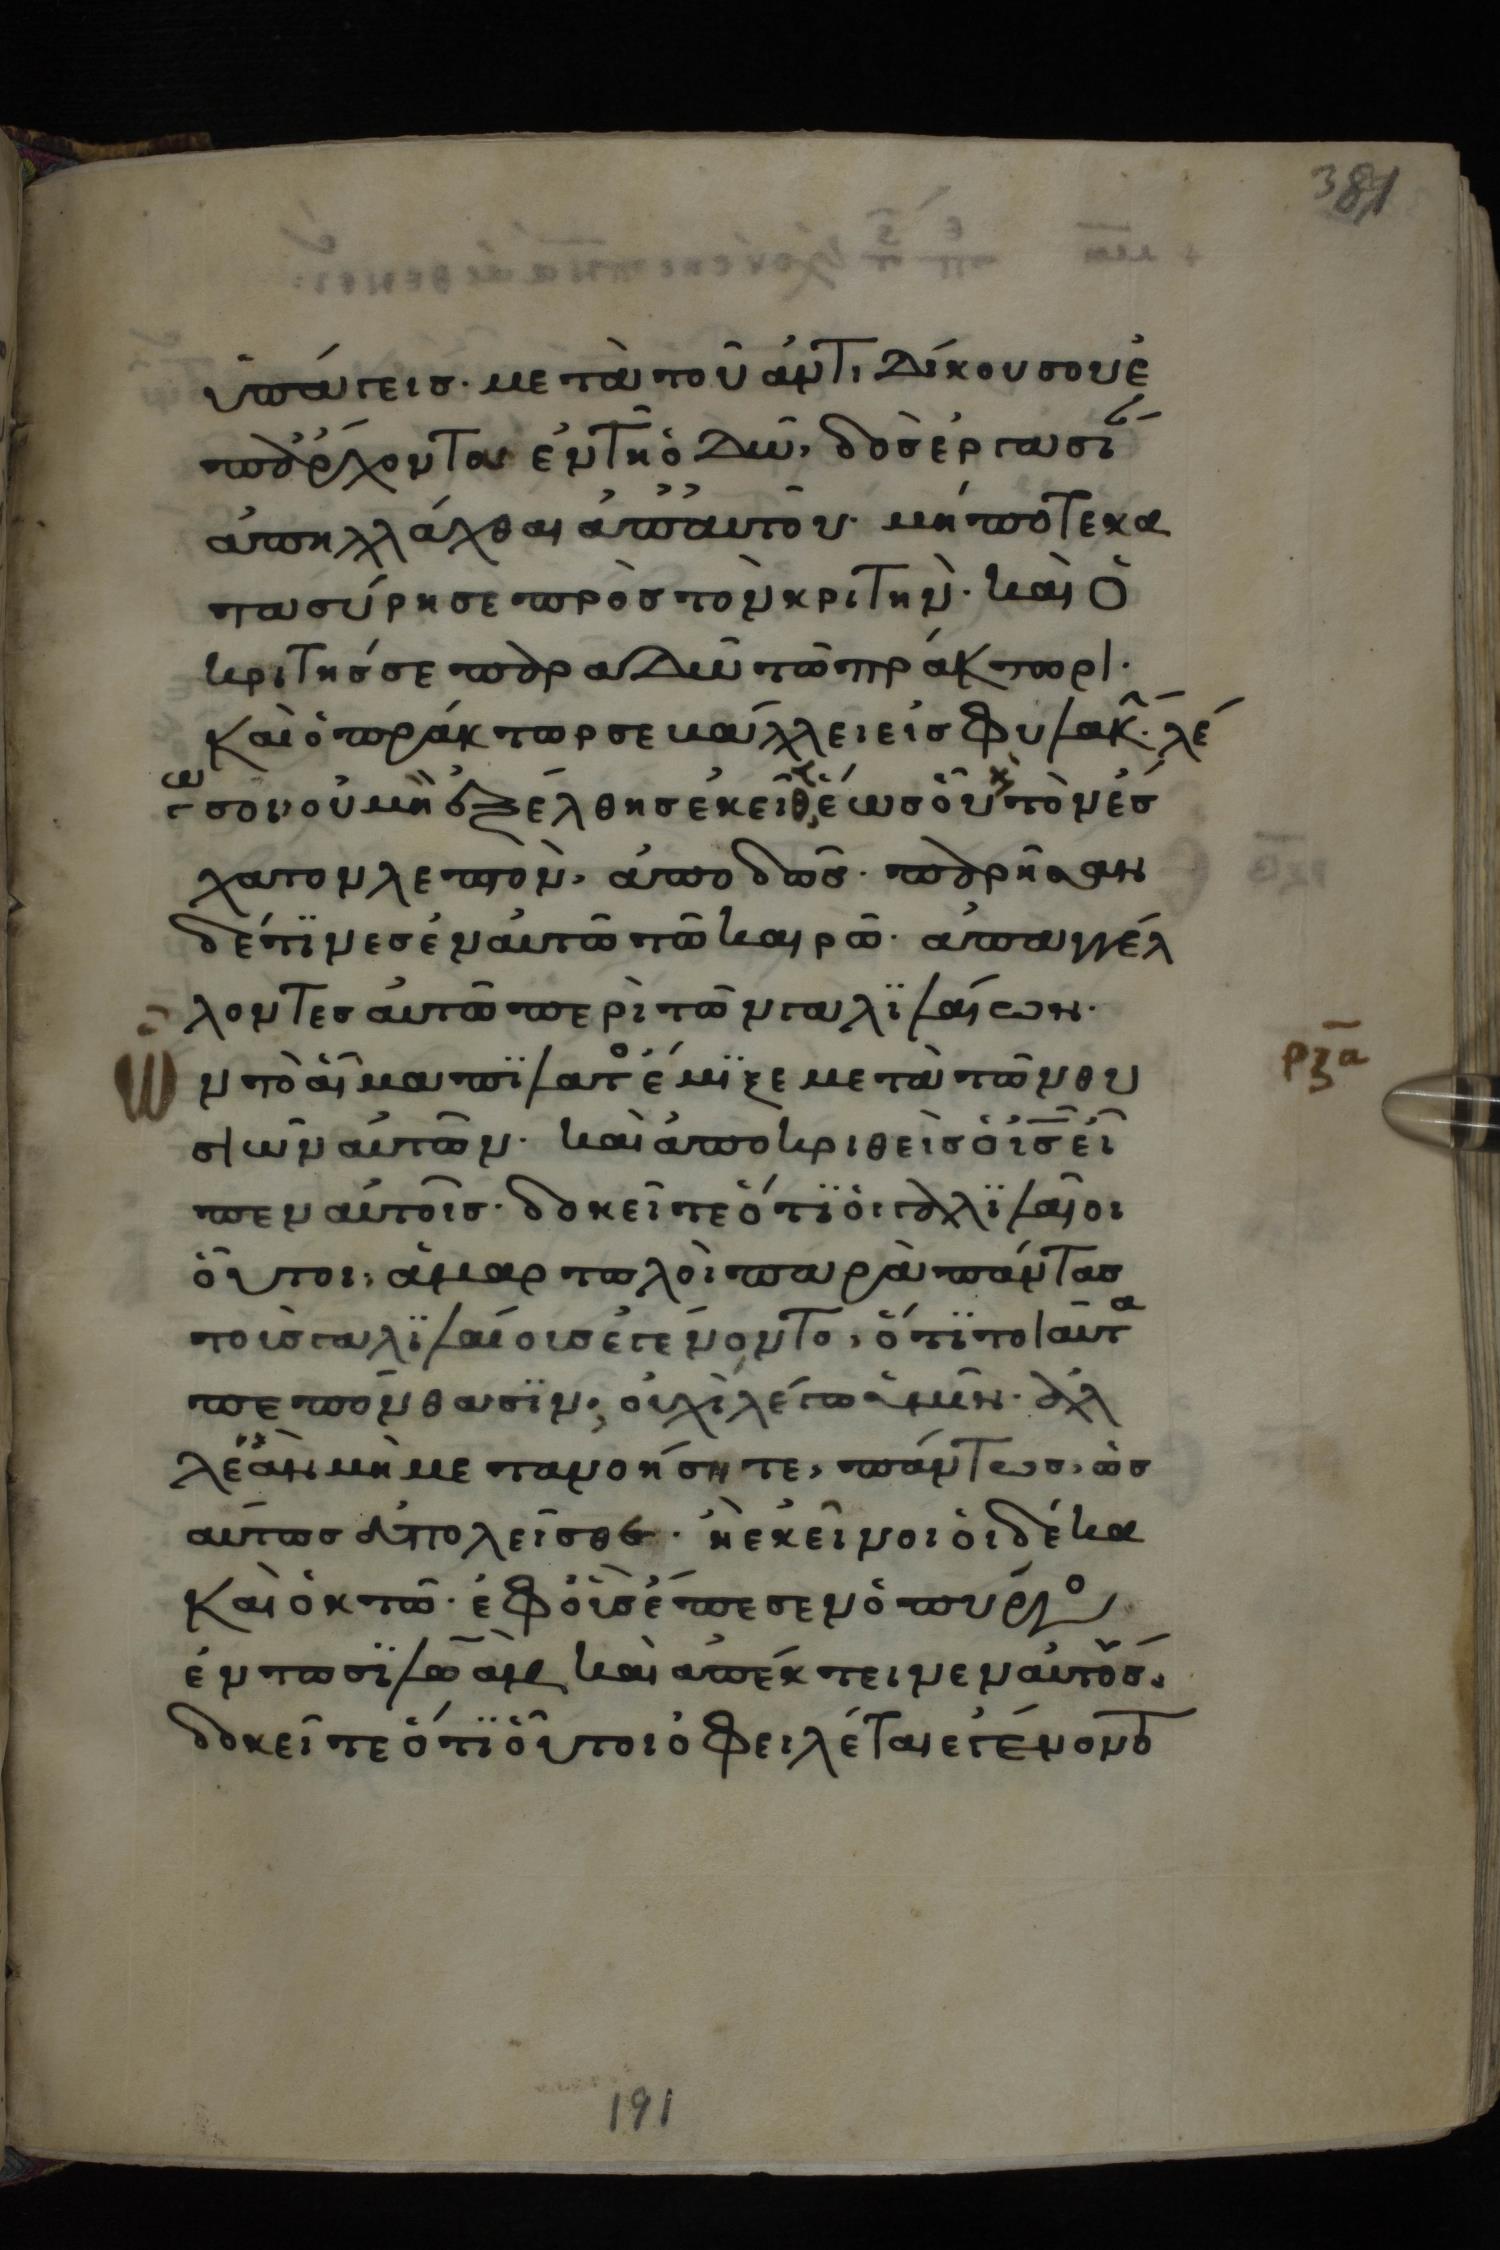 381
ὑπάγεις· μετὰ τοῦ ἀντιδίκου σου ἐ
π ἄρχοντα ἐν τῇ ὁδῶ, δὸς ἐργασί
ἀπηλλάχθαι ἀπ' αὐτοῦ· μήποτε κα
τασύρη σε πρὸς τὸν κριτὴν· καὶ ὁ
κριτής σε παραδῶ τῶ πράκτορι·
καὶ ὁ πράκτωρ σε βάλλει εἰς φυλακ· λέ
γω σοι οὐ μὴ ἐξέλθης ἐκεῖθε, ἕως οὗ κ τὸν ἔσ
χατον λεπτὸν, ἀποδῶς· παρῆσαν
δέ τϊνες ἐν αὐτῶ τῶ καιρῶ· ἀπαγγέλ
λοντες αὐτῶ περὶ τῶν γαλϊλαίων·
ρξα
ὧν τὸ αἷμα πϊλατο ἔμϊξε μετὰ τῶν θυ
σιῶν αὐτῶν· καὶ ἀποκριθεὶς ὁ ις εἶ
πεν αὐτοῖς· δοκεῖτε ὅτϊ οἱ γαλϊλαῖοι
οὗτοι, ἁμαρτωλοὶ παρὰ πάντας
τοὺς γαλϊλαίους ἐγένοντο, ὅτϊ τοιαῦτα
πεπόνθασϊν, οὐχὶ λέγω ὑμῖν· ἀλ
λ' ἐὰν μὴ μετανοήσητε, πάντως, ὡσ
αύτως ἀπολεῖσθε· ἢ ἐκεῖνοι οἱ δέκα
καὶ ὀκτῶ· ἐφ' οἷς ἔπεσεν ὁ πύργο
ἐν τῶ σϊλωὰμ, καὶ ἀπέκτεινεν αὐτούς.
δοκεῖτε ὅτϊ οὗτοι ὀφειλέται ἐγένοντο
191